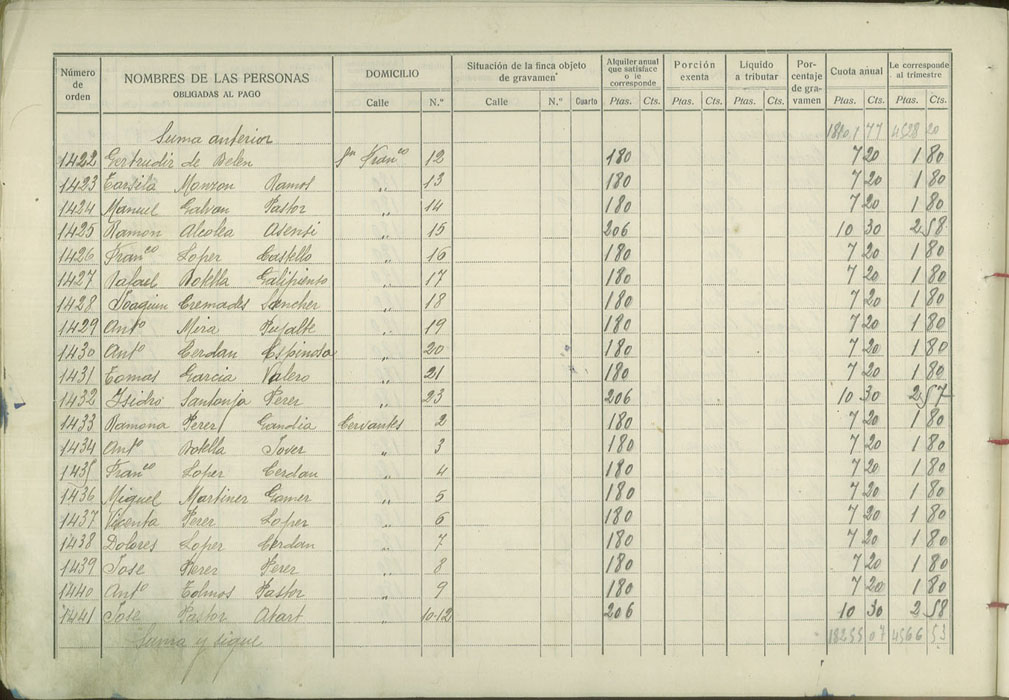 Número de orden | NOMBRES DE LAS PERSONAS OBLIGADAS AL PAGO | DOMICILIO | Situación de la finca objeto de gravamen | Alquiler anual que satisface o le corresponde | Porción exenta | Líquido a tributar | Porcentaje de gravamen | Cuota anual | Le corresponde al trimestre
Calle | N.º | Calle | N.º | Cuarto | Ptas. | Cts. | Ptas. | Cts. | Ptas. | Cts. | Ptas. | Cts. | Ptas. | Cts.
Suma anterior 18101 77 4528 20
1422 Gertrudis de Belen Sn Franco 12 180 7 20 1 80
1423 Tarsila Monzon Ramos " 13 180 7 20 1 80
1424 Manuel Galvan Pastor " 14 180 7 20 1 80
1425 Ramon Alcolea Asensi " 15 206 10 30 2 58
1426 Franco Loper Castello " 16 180 7 20 1 80
1427 Rafael Botella Galipienso " 17 180 7 20 1 80
1428 Joaquin Cremades Sancher " 18 180 7 20 1 80
1429 Anto Mira Pujalte " 19 180 7 20 1 80
1430 Anto Cerdan Espinosa " 20 180 7 20 1 80
1431 Tomas Garcia Valero " 21 180 7 20 1 80
1432 Isidro Santonja Perer " 23 206 10 30 2 57
1433 Ramona Perer Gandia Cervantes 2 180 7 20 1 80
1434 Anto Botella Jover " 3 180 7 20 1 80
1435 Franco Loper Cerdan " 4 180 7 20 1 80
1436 Miguel Martiner Gomer " 5 180 7 20 1 80
1437 Vicenta Perer Loper " 6 180 7 20 1 80
1438 Dolores Loper Cerdan " 7 180 7 20 1 80
1439 Jose Perer Perer " 8 180 7 20 1 80
1440 Anto Tolmos Pastor " 9 180 7 20 1 80
1441 Jose Pastor " 10-12 206 10 30 2 58
Suma y sigue 18255 07 4566 53